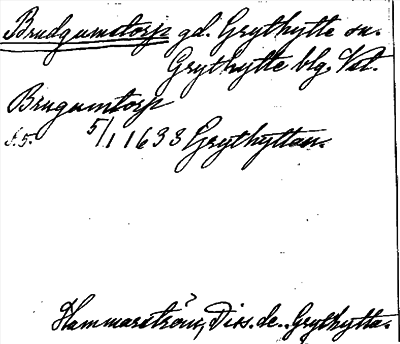 Brudgumstorp gd. Grythytte sn.
Grythytte blg. Vstl.
Brugumtorp
s. 5. 5/1 1633 Grythyttan.
Hammarström, Diss. de.. Grythytta.